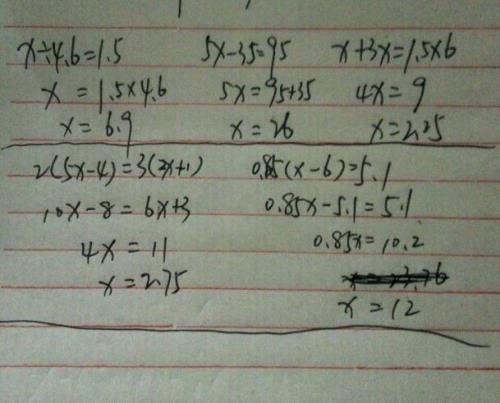 x÷4.6=1.5
x = 1.5×4.6
x = 6.9
5x-35=95
5x=95+35
x = 26
x+3x=1.5×6
4x = 9
x=2.25
2(5x-4)=3(2x+1)
10x-8=6x+3
4x = 11
x=2.75
0.85(x-6)=5.1
0.85x-5.1=5.1
0.85x=10.2
x = 12